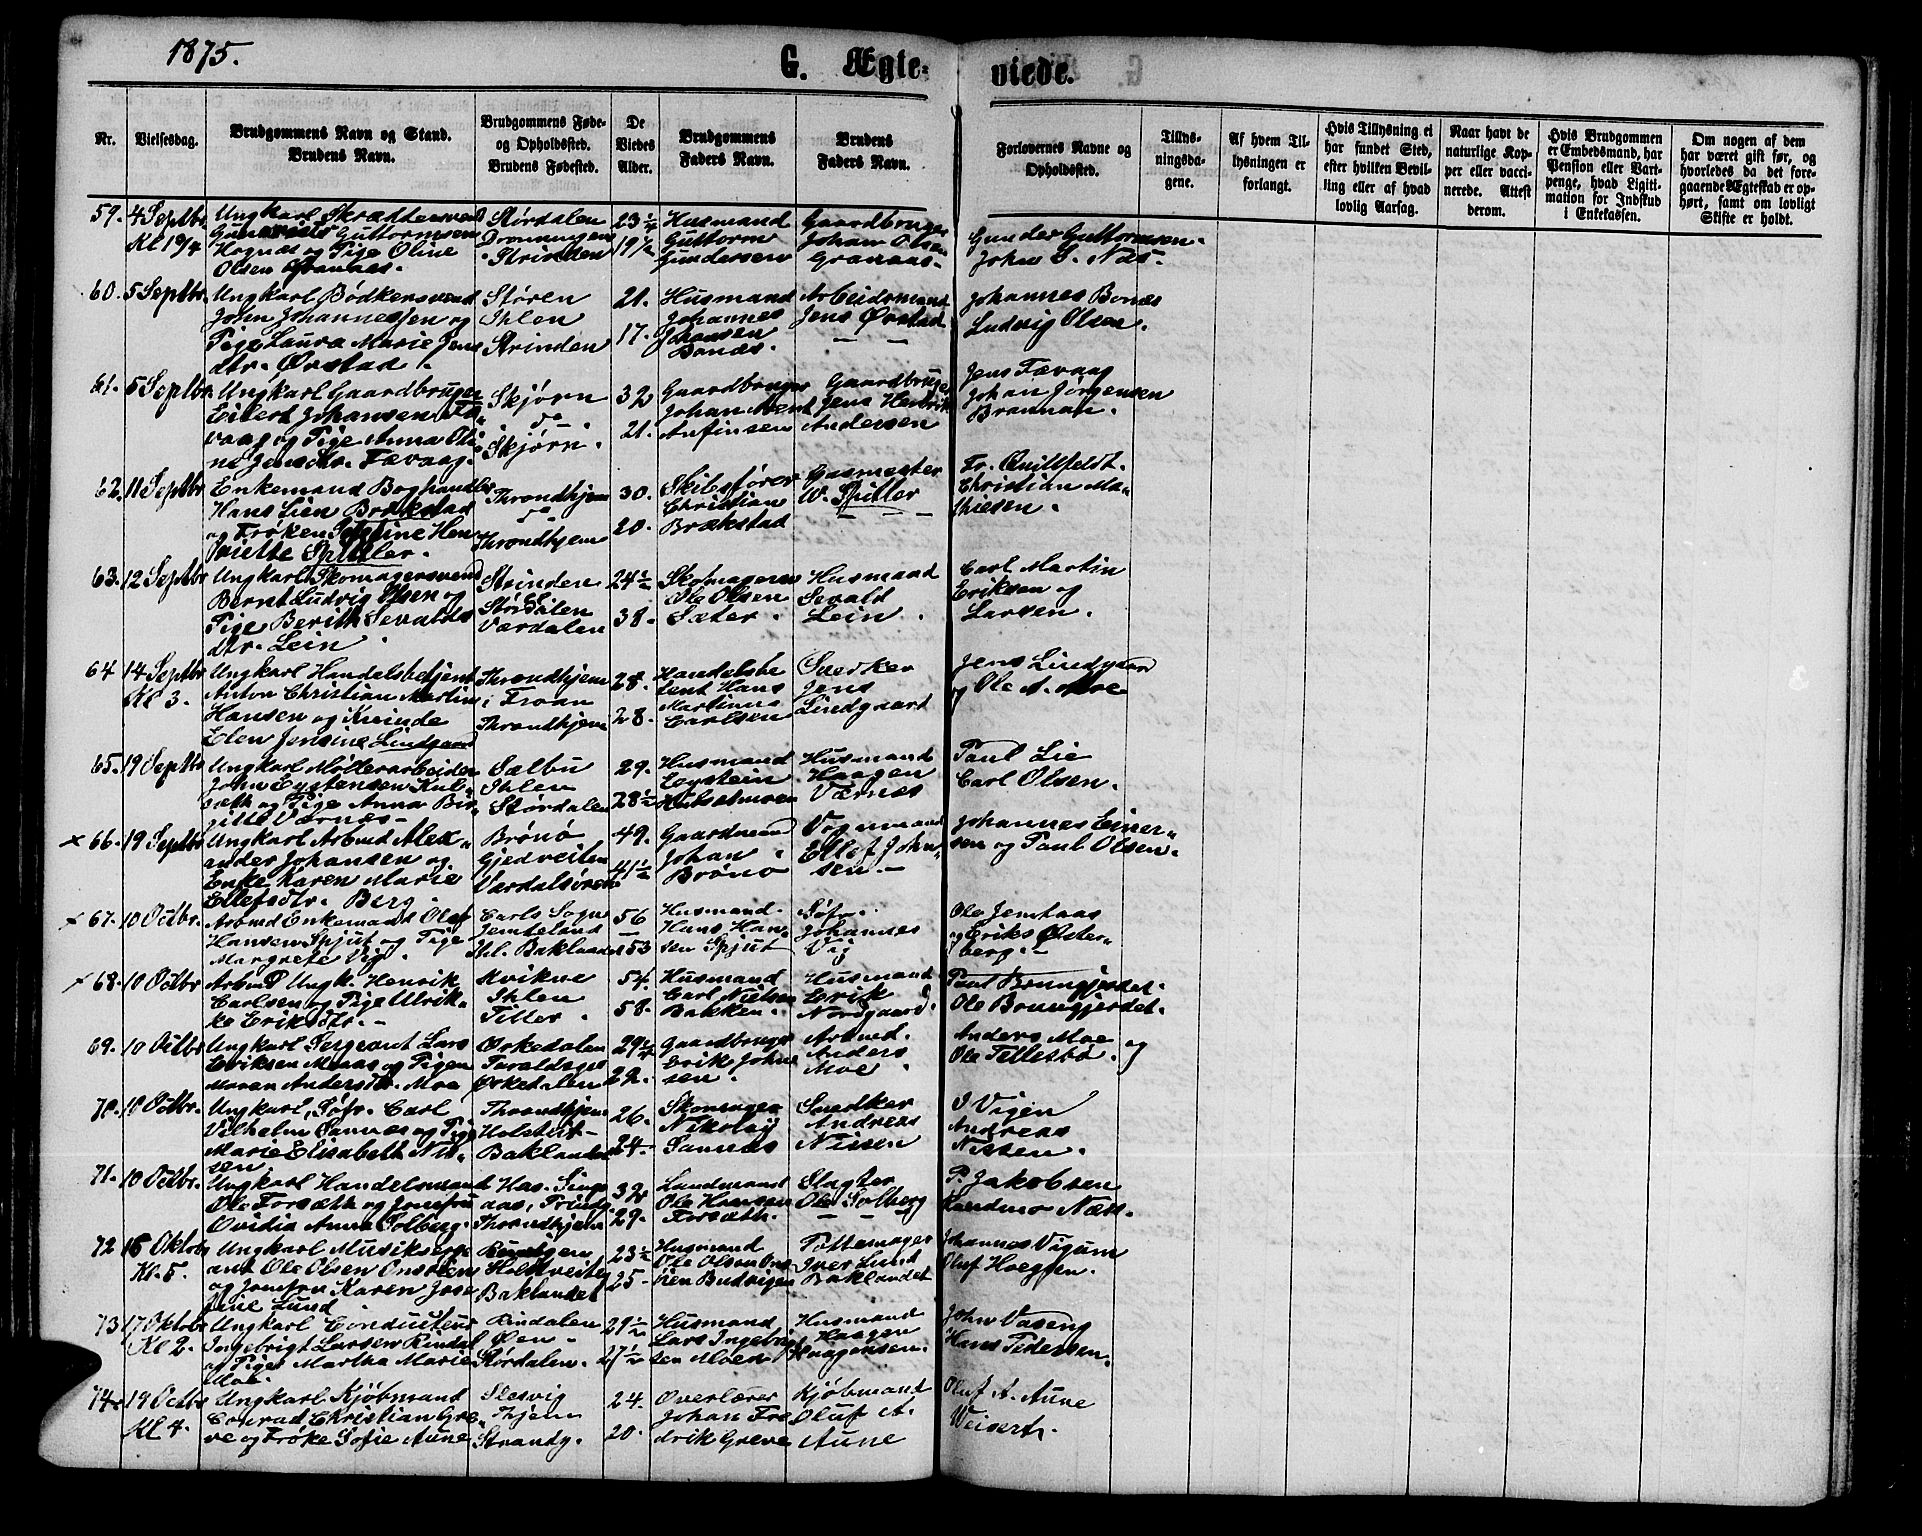 1875.
G. Ægte-
viede.
Nr.
Vielsesdag.
Brudgommens Navn og Stand.
Brudens Navn.
Brudgommens Føde-
og Opholdssted.
Brudens Fødested.
De
Viedes
Alder.
Brudgommens
Faders Navn.
Brudens
Faders Navn.
Forlovernes Navne og
Opholdssted.
Tillys-
ningsda-
gene.
Af hvem Til-
lysningen er
forlangt.
Hvis Tillysning ei
har fundet Sted,
efter hvilken Bevil-
ling eller af hvad
lovlig Aarsag.
Naar havt de
naturlige Kop-
per eller vacci-
nerede. Attest
derom.
Hvis Brudgommen
er Embedsmand, har
Pension eller Vart-
penge, hvad Ligiti-
mation for Indskud
i Enkekassen.
Om nogen af dem
har været gift før, og
hvorledes da det fore-
gaaende Ægteskab er op-
hørt, samt om lovligt
Skifte er holdt.
59. 4 Septbr
Ungkarl Skræddersvend
Guttormsen
Hognæs og Pige Oline
Olsen Grannæs.
Størdalen
Dronningens
Strinden
23 1/4
19 1/2
Husmand
Guttorm
Gundersen
Gaardbruger
Johan Olsen
Granaas
Gunder Guttormsen.
John S. Næs.
60. 5 Septbr.
Ungkarl Bødkersvend
John Johannessen og
Pige Laura Marie Jens
dtr. Ørstad.
Støren
Ihlen
Strinden
21.
17.
Husmand
Johannes
Johansen
Bonæs.
Arbeidsmand
Jens Ørstad
Johannes Bonæs
Ludvig Olsen.
61. 5 Septbr
Ungkarl Gaardbruger
Eilert Johansen Fæ-
vaag og Pige Anna Oli-
ne Jensdtr. Fævaag.
Skjørn
do
Skjørn.
32
21.
Gaardbruger
Johan Arent
Anfinsen
Gaardbruger
Jens Henrik
Andersen
Jens Fævaag
Johan Jørgensen
Brannan.
62. 11 Septbr
Enkemand Boghandler
Hans Lien Brækstad
og Frøken Jossine Hen-
riette Spitler.
Throndhjem
do
Throndhjem
30.
20.
Skibsfører
Christian
Brækstad
Gasmester
W. Spitler
Fr. Quillfeldt.
Christian Ma-
thiesen.
63. 12 Septbr
Ungkarl Skomagersvend
Bernt Ludvig Olsen og
Pige Berith Sevalds
dtr. Lein.
Strinden
Størdalen
Værdalen
24 1/2
38.
Skomagersv
Ole Olsen
Sæter.
Husmand
Sevald
Lein.
Carl Martin
Eriksen og
Larsen.
64 14 Septbr
Kl 3.
Ungkarl Handelsbetjent
Anton Christian Martin
Hansen og Kvinde
Elen Jensine Lindgaard
Throndhjem
i Froan
Throndhjem
28.
28.
Handelsbe
tjent Hans
Martinus
Carlsen
Snedker
Jens
Lindgaard
Jens Lindgaard
og Ole A. Moe
65. 19 Septbr
Ungkarl Møllerarbeider
John Eystensen Kul-
sæth og Pige Anna Bir-
gitte Værnes
Sælbu
Ihlen
Størdalen
29.
28 1/2
Husmand
Eystein
Husmand
Haagen
Værnes
Paul Lie
Carl Olsen.
x 66. 19 Septbr
Ungkarl Arbmd Alex-
ander Johansen og
Enke Karen Marie
Ellefsdtr. Berg.
Brønø
Gjedveiten
Værdalsøren
49.
41 1/2
Gaardmand
Johan
Brønø
Vognmand
Ellef John-
sen.
Johannes Einer-
sen og Paul Olsen.
x 67. 10 Octbr.
Arbmd Enkemand Olof
Hansen Spjut og Pige
Margrete Vig.
Carls Sogn
Jemteland
Bakland
56
53
Husmand.
Hans Han-
sen Spjut
Søfr.
Johannes
Vig
Ole Jemtaas
og Eriks Øster-
berg.
x 68. 10 Octbr
Arbmd Ungk. Henrik
Carlsen og Pige Ulrik-
ke Eriksdtr.
Kvikne
Ihlen
Tiller.
54.
58.
Husmand
Carl Nielsen
Bakken.
Husmand
Erik
Nordgaard.
Paul Brungjerdet.
Ole Brungjerdet.
69. 10 Octbr
Ungkarl Sergeant Lars
Eriksen Maaas og Pigen
Maren Andersdtr. Moe
Orkedalen
Taraldsgs
Orkedalen
29 1/4
22.
Gaardbruger
Erik John-
sen.
Arbmd.
Anders
Moe
Anders Moe og
Ole Tellesbø.
70. 10 Octbr.
Ungkarl, Søfr. Carl
Vilhelm Sannæs og Pige
Marie Elisabeth Nis-
sen.
Throndhjem
Holstvit
Baklandet
26.
24
Skomager
Nikolay
Sannæs
Snedker
Andreas
Nissen
I Vigen
Andreas
Nissen.
71. 10 Octbr.
Ungkarl Handelsmand
Ole Forsæth og Jomfru
Ovidia Anna Solberg.
Throndhjem
32
29.
Landmand
Ole Hansen
Forsæth.
Slagter
Ole Solberg
P. Jakobsen
Næss.
72 16 Oktobr
Kl. 5.
Ungkarl Musikserge
ant Ole Olsen Onsøien
og Jomfru Karen Jose-
fine Lund
Holstveiten
Baklandet
23 1/2
25
Husmand
Ole Olsen Ons
øien Budvigen
Pottemager
Iver Lund
Baklandet
Johannes Vigum
Oluf Hoegsen.
73 17 Oktobr
Kl 2.
Ungkarl Conducteur
Ingebrigt Larsen Rindal
og Pige Martha Marie
Moe.
Rindalen
Øen
Størdalen.
29 1/2
27 1/2
Husmand
Lars Ingebrigt
sen Moen
Husmand
Haagen
Haagensen.
John Vaseng
Hans Pedersen.
74 19 Octbr
Kl 4.
Ungkarl Kjøbmand
Conrad Christian Gre-
ve og Frøke Sofie Aune
Slesvig
Thjem
Strandg.
24.
20.
Overlærer
Johan Fre
drik Greve
Kjøbmand
Oluf A.
Aune
Oluf A. Aune
Weisert.